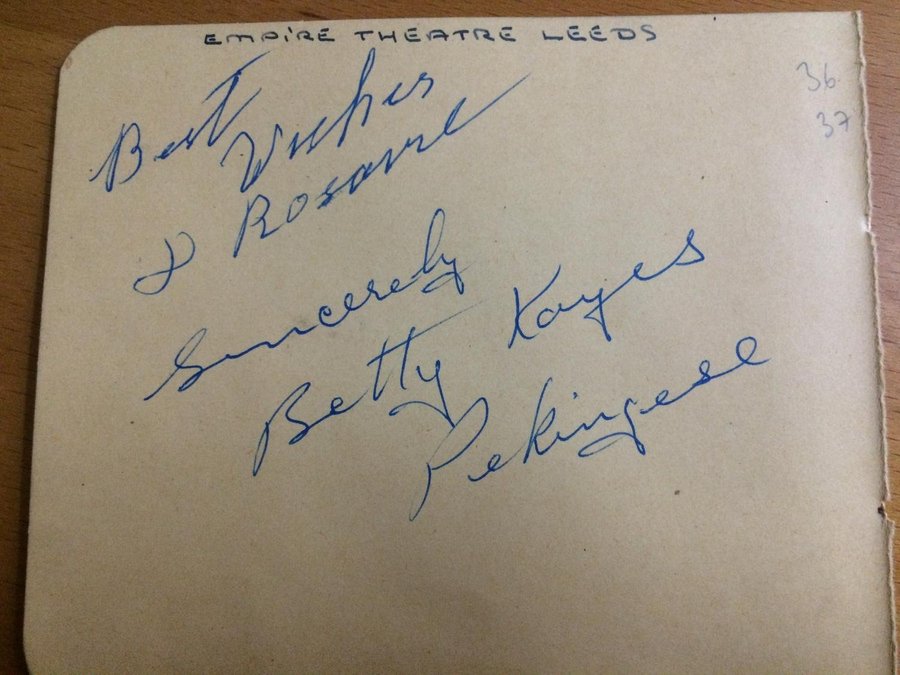 EMPIRE THEATRE LEEDS
36
37
Best
Wishes
Rosanne
Sincerely
Betty Kayes
Pekingese